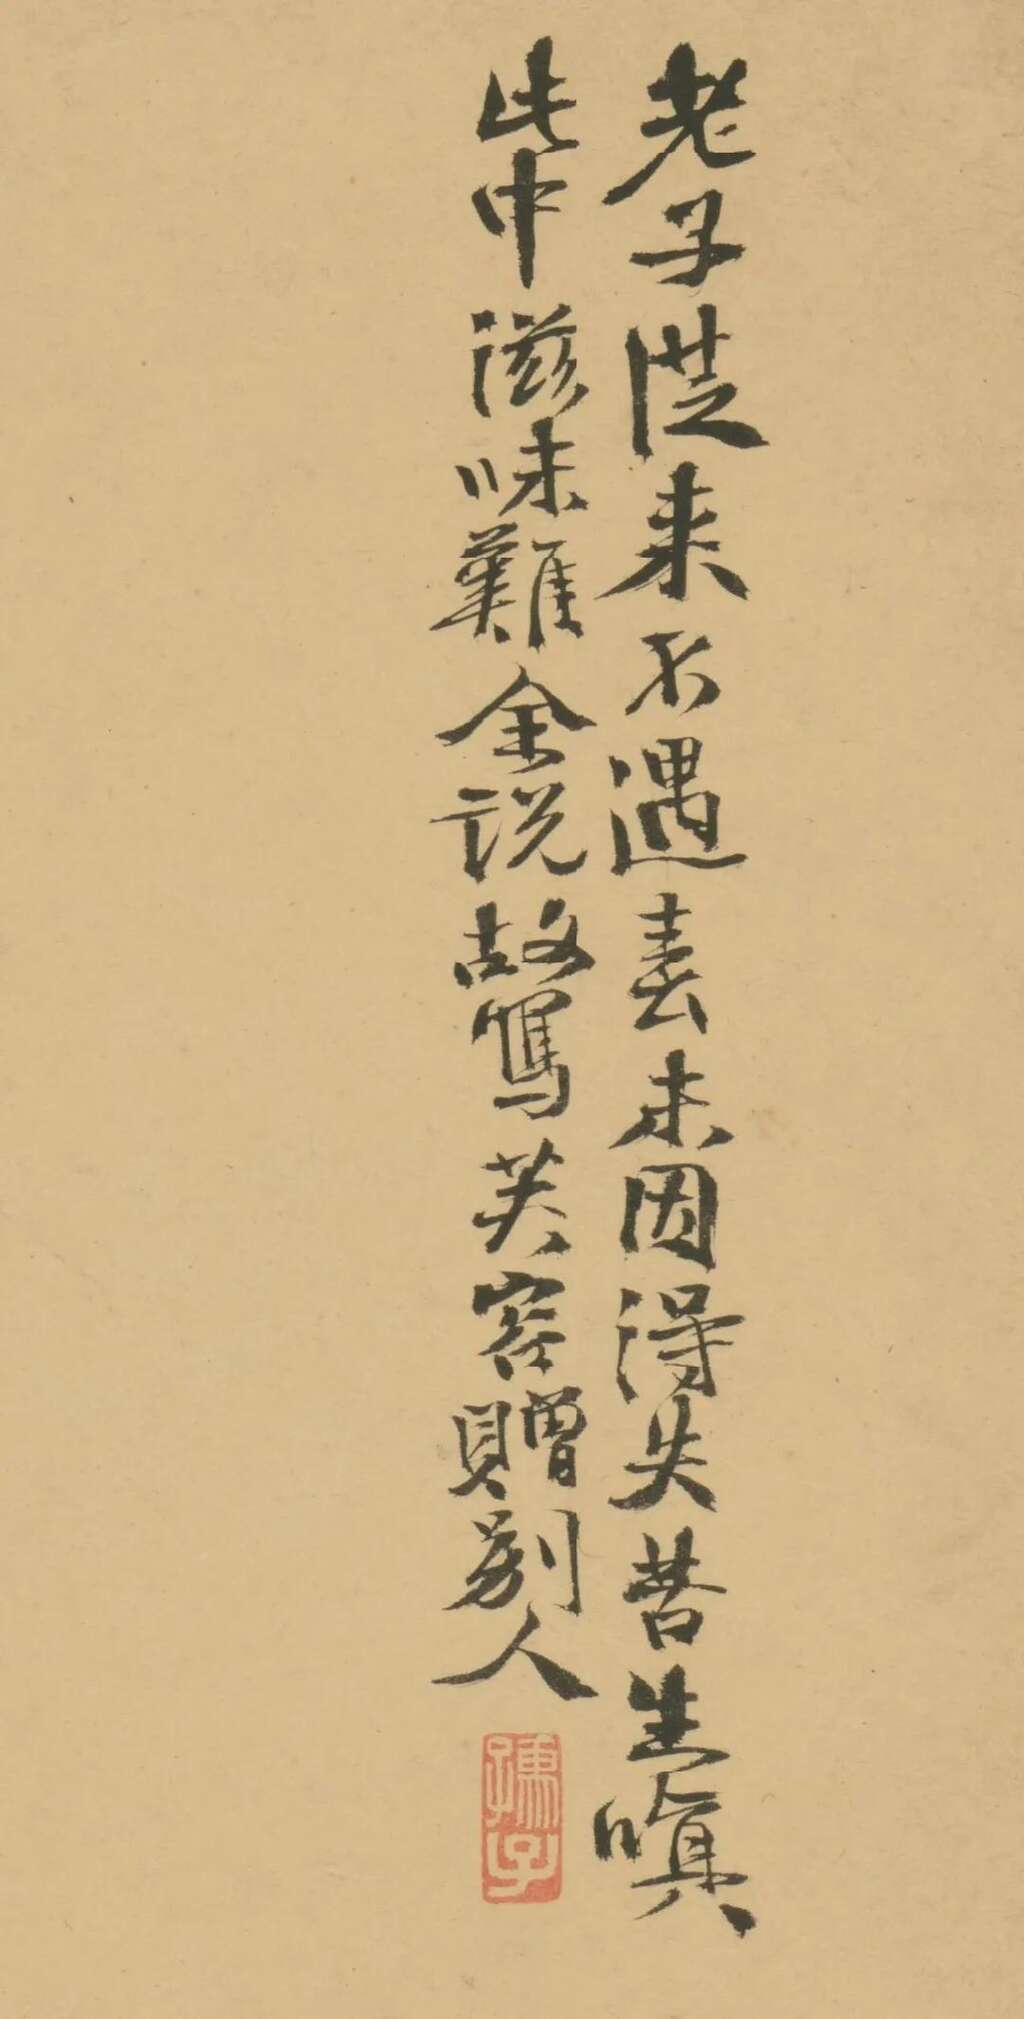 老子從来不遇春未因得失苦生嗔
此中滋味難全説故寫芙容贈別人